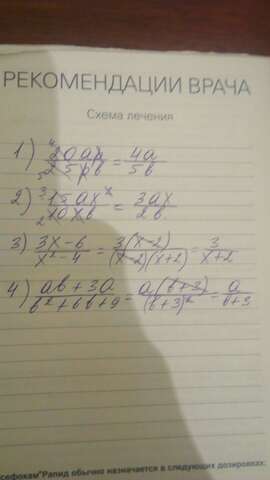 РЕКОМЕНДАЦИИ ВРАЧА
Схема лечения
1) 20ap/25pb = 4a/5b
2) 15ax²/10xb = 3ax/2b
3) 3x-6/x²-4 = 3(x-2)/(x-2)(x+2) = 3/x+2
4) ab+3a/b²+6b+9 = a(b+3)/(b+3)² = a/b+3
Рапид обычно назначается в следующих дозировках: